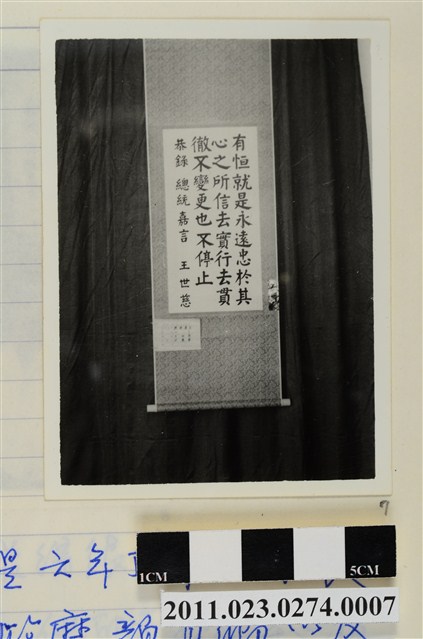 有恒就是永遠忠於其
心之所信去實行去貫
徹不變更也不停止
恭錄 總統嘉言 王世慈
7
1CM 5CM
2011.023.0274.0007
是六年